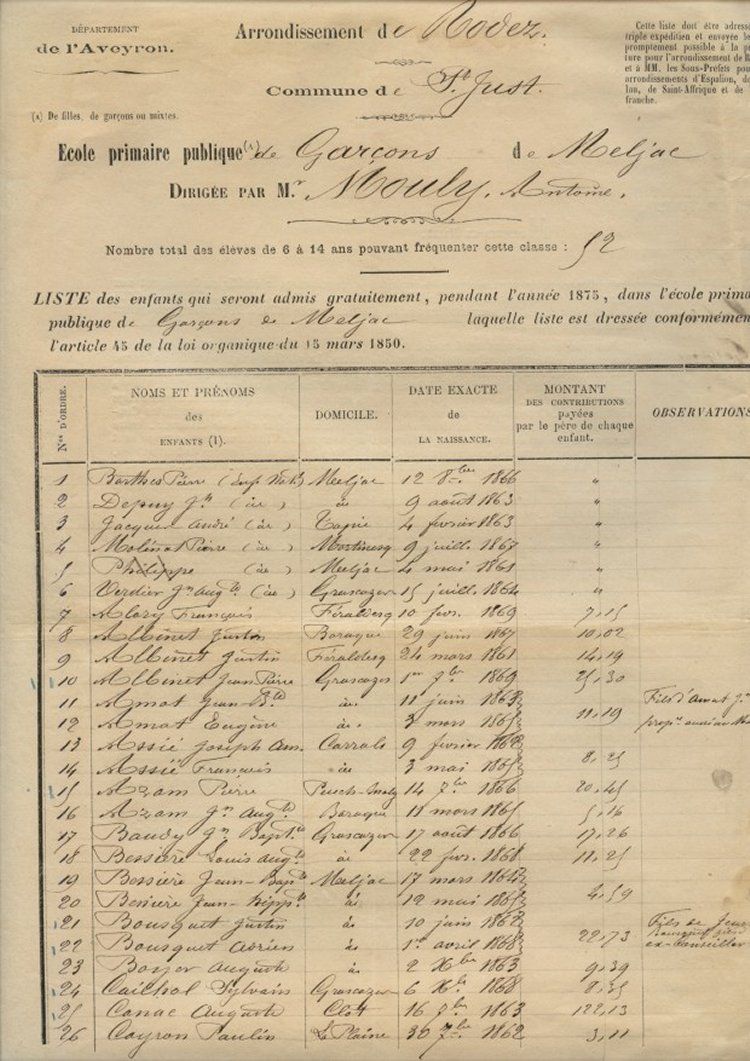 DÉPARTEMENT
de l'Aveyron.
(1) De filles, de garçons ou mixtes.
Arrondissement de Rodez.
Commune de St Just.
Cette liste doit être adress
triple expédition et envoyée le
promptement possible à la p
ture pour l'arrondissement de R
et à MM. les Sous-Préfets pou
arrondissements d'Espalion, de
lau, de Saint-Affrique et de
franche.
Ecole primaire publique (1) de Garçons de Meljac
DIRIGÉE PAR Mr Mouly, Antoine.
Nombre total des élèves de 6 à 14 ans pouvant fréquenter cette classe : 52
LISTE des enfants qui seront admis gratuitement, pendant l'année 1875, dans l'école prima
publique de Garçons de Meljac laquelle liste est dressée conformémen
l'article 45 de la loi organique du 15 mars 1850.
Nos D'ORDRE. NOMS ET PRÉNOMS des ENFANTS (1). DOMICILE. DATE EXACTE de LA NAISSANCE. MONTANT DES CONTRIBUTIONS payées par le père de chaque enfant. OBSERVATIONS
1 Barthes Pierre Meljac 12 8bre 1866 "
2 Depuy Jn (id) id 9 août 1863 "
3 Jacques André (id) Tapie 4 février 1863 "
4 Molinat Pierre (id) 9 juill. 1867 "
5 Philippe (id) Meljac 4 mai 1861 "
6 Verdier Jn Augte (id) Grascazer 15 juill. 1864 "
7 Alary François Féraldesq 10 fev. 1869 7,15
8 Albinet Justin Baraque 29 juin 1867 10,02
9 Albinet Justin Féraldesq 24 mars 1861 14,19
10 Albinet Jean Pierre Grascazer 1er 7bre 1869 25,30
11 Amat Jean Bte id. 11 juin 1863 11,19 Fils d'Amat Jn
12 Amat Eugène id. 3 mars 1865
13 Assié Joseph Am. Carrals 9 février 1862 8,25
14 Assié François id 3 mai 1865
15 Azam Pierre 14 7bre 1866 20,45
16 Azam Jn Augte Baraque 11 mars 1865 5,16
17 Baudy Jn Bapte Grascazer 17 août 1866 17,26
18 Bessière Louis Augte id 22 fev. 1868 11,25
19 Bessière Jean-Bapte Meljac 17 mars 1862 4,59
20 Bessière Jean-hippte id 12 mai 1865
21 Bousquet Justin id 10 juin 1862 22,73 Fils de
22 Bousquet Adrien id. 1er avril 1868 ex-conseiller
23 Boyer Auguste id 2 Xbre 1863 9,39
24 Cailhol Sylvain Grascazer 6 Xbre 1868 2,35
25 Canac Auguste Clôt 16 7bre 1863 122,13
26 Cayron Paulin La Plaine 30 7bre 1862 3,11